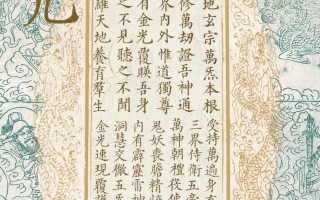 地玄宗萬炁本根
修萬劫證吾神通
界内外惟道獨尊
有金光覆暎吾身
之不見聽之不聞
羅天地養育羣生
受持萬遍身
三界侍衛五帝
萬神朝禮役使
鬼妖喪膽精
内有霹靂雷神
洞慧交徹五炁
金光速現覆